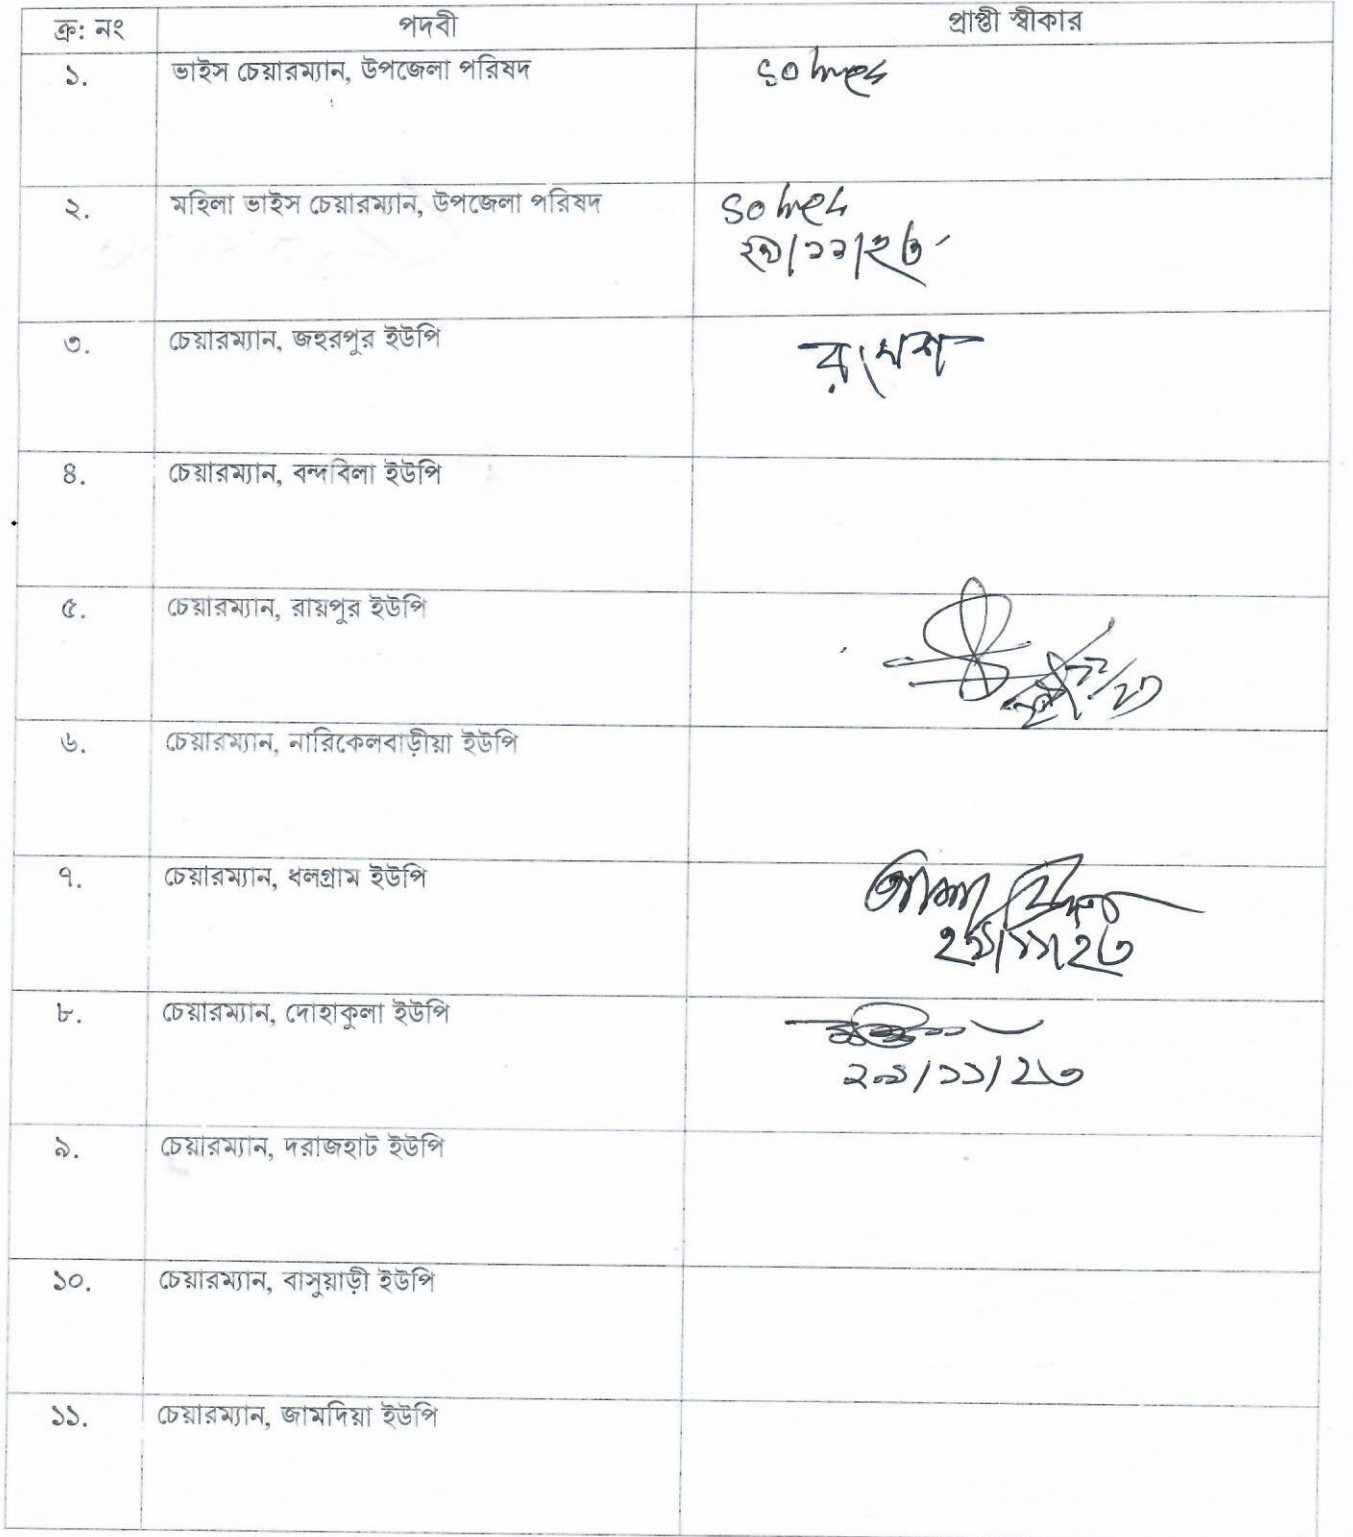 ক্র: নং পদবী প্রাপ্তী স্বীকার
১. ভাইস চেয়ারম্যান, উপজেলা পরিষদ
২. মহিলা ভাইস চেয়ারম্যান, উপজেলা পরিষদ
২৯/১১/২৩
৩. চেয়ারম্যান, জহুরপুর ইউপি
৪. চেয়ারম্যান, বন্দবিলা ইউপি
৫. চেয়ারম্যান, রায়পুর ইউপি
৬. চেয়ারম্যান, নারিকেলবাড়ীয়া ইউপি
৭. চেয়ারম্যান, ধলগ্রাম ইউপি
২৯/১১/২৩
৮. চেয়ারম্যান, দোহাকুলা ইউপি
২৯/১১/২৩
৯. চেয়ারম্যান, দরাজহাট ইউপি
১০. চেয়ারম্যান, বাসুয়াড়ী ইউপি
১১. চেয়ারম্যান, জামদিয়া ইউপি